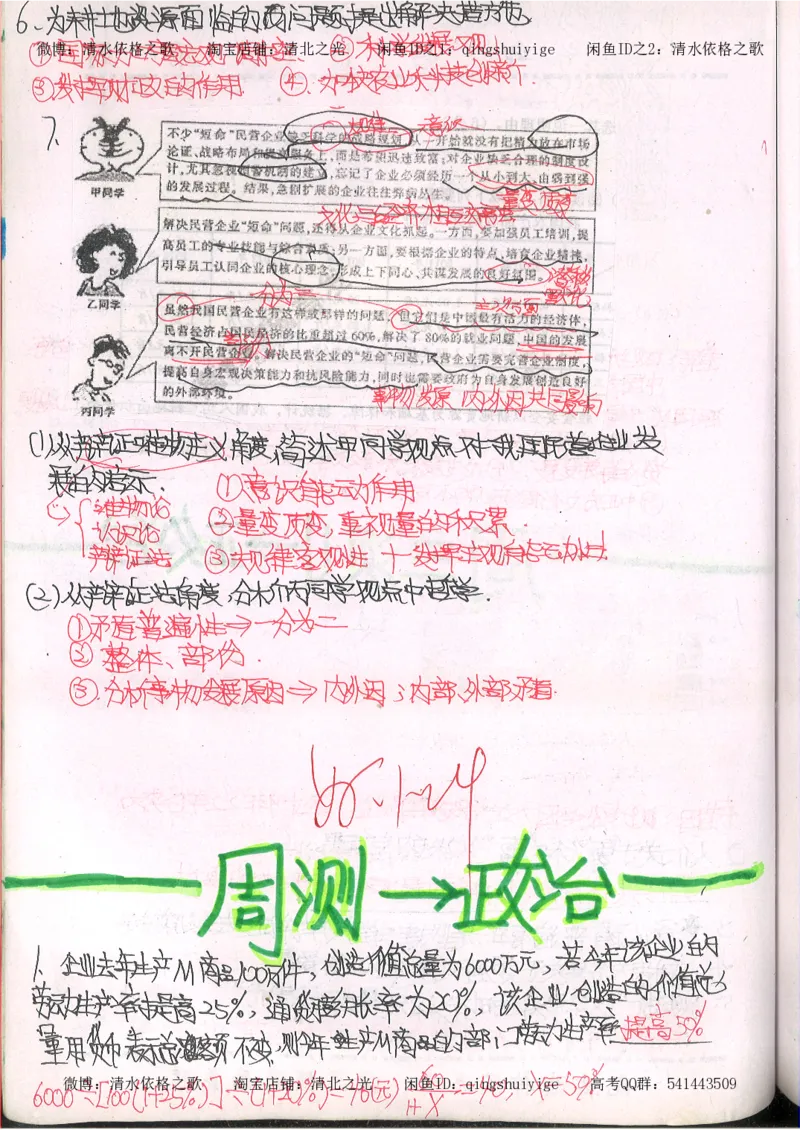 6、为未来土地资源面临的两问题提出解决措施
微博：清水依格之歌 淘宝店铺：清北之光 闲鱼ID之1：qingshuiyige 闲鱼ID之2：清水依格之歌
③发挥财政的作用 ④
7、
不少“短命”民营企业缺乏科学的战略规划，从一开始就没有把精力放在市场
论证、战略布局和 上，而是希望迅速致富；对企业缺乏合理的制度设
计，尤其忽视 机制的建立，忘记了企业必须经历一个从小到大、由弱到强
的发展过程。结果，急剧扩展的企业往往弊病丛生。
规律 意识
量变 质变
甲同学
文化与经济相互交融
解决民营企业“短命”问题，还得从企业文化抓起。一方面，要加强员工培训，提
高员工的专业技能与综合素质；另一方面，要根据企业的特点，培育企业精神，
引导员工认同企业的核心理念，形成上下同心、共谋发展的良好氛围。
乙同学
一分为二 主次方面
虽然我国民营企业有这样或那样的问题，但它们是中国最有活力的经济体，
民营经济占国民经济的比重超过60%，解决了80%的就业问题，中国的发展
离不开民营企业。解决民营企业的“短命”问题，民营企业需要完善企业制度，
提高自身宏观决策能力和抗风险能力，同时也需要政府为自身发展创造良好
的外部环境。
丙同学
事物发展 内外因共同影响
(1)从辩证唯物主义角度，简述甲同学观点对于我国民营企业发
展的启示.
①意识能动作用
唯物论
认识论
辩证法
②量变质变，重视量的积累
③尊重规律客观性+发挥主观能动性
(2)从辩证法角度，分析丙同学观点中哲学.
①矛盾普遍性⇒一分为二
②整体、部份.
③.分析事物发展原因⇒内外因；内部、外部矛盾.
周测→政治
1、企业去年生产M商品100万件，创造价值总量为6000万元，若今年该企业的
劳动生产率提高25%，通货膨胀率为20%，该企业创造的价值总
量用货币表示总额不变，则今年生产M商品的部门劳动生产率提高50%
微博：清水依格之歌 淘宝店铺：清北之光 闲鱼ID：qingshuiyige 高考QQ群：541443509
6000÷[100(1+25%)]÷(1+20%)=40(元)